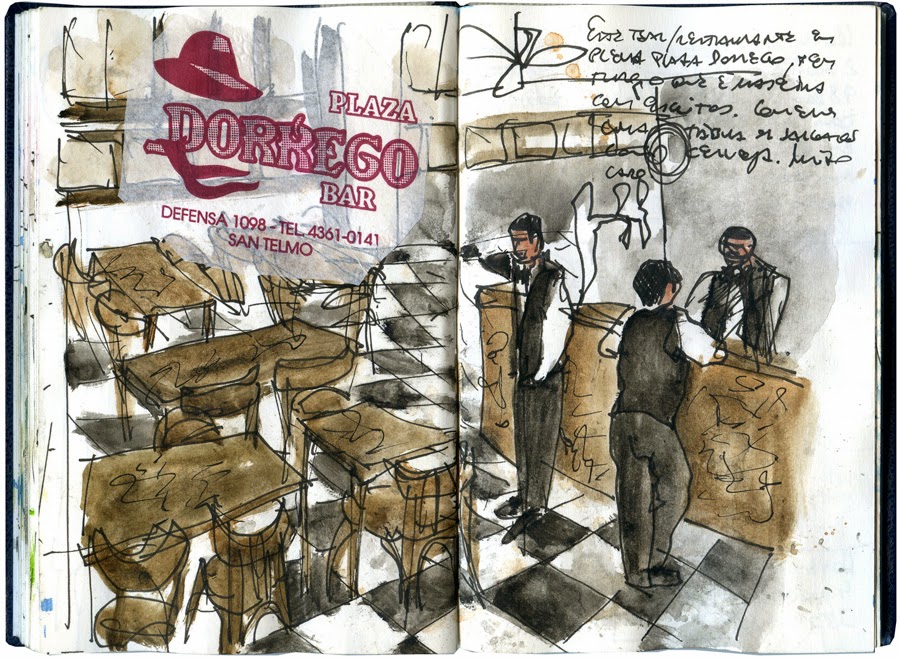 PLAZA
DORREGO
BAR
DEFENSA 1098 - TEL. 4361-0141
SAN TELMO
Este bar/restaurante em
plena Plaza Dorrego, tem
que
com escritos.
uma tabua de
com cerveja. Muito
caro